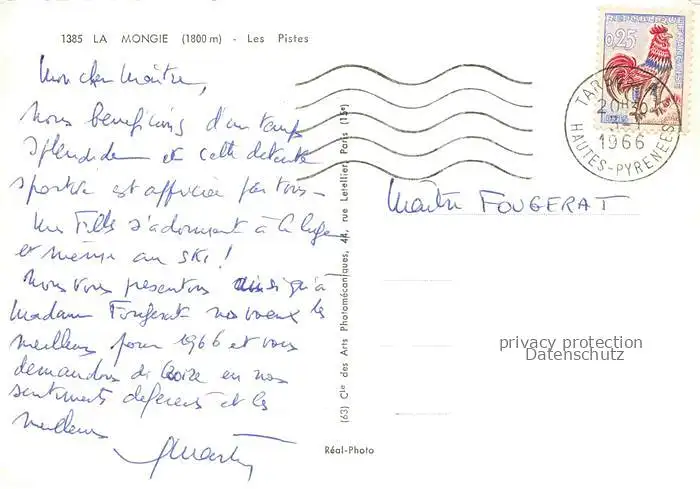 1385 LA MONGIE (1800 m) - Les Pistes
Mon cher Maître,
Nous bénéficions d'un temps
splendide et cette détente
sportive est appréciée par tous -
Les Filles s'adonnent à la luge
et même au SKI !
Nous vous présentons ainsi qu'à
Madame Fougerat nos vœux les
meilleurs pour 1966 et vous
demandons de croire en nos
sentiments déférents et les
meilleurs
(63) Cie des Arts Photomécaniques, 44, rue Letellier Paris (15e)
Réal-Photo
0,25
20H30
1966
HAUTES-PYRENEES
Maître FOUGERAT
privacy protection
Datenschutz